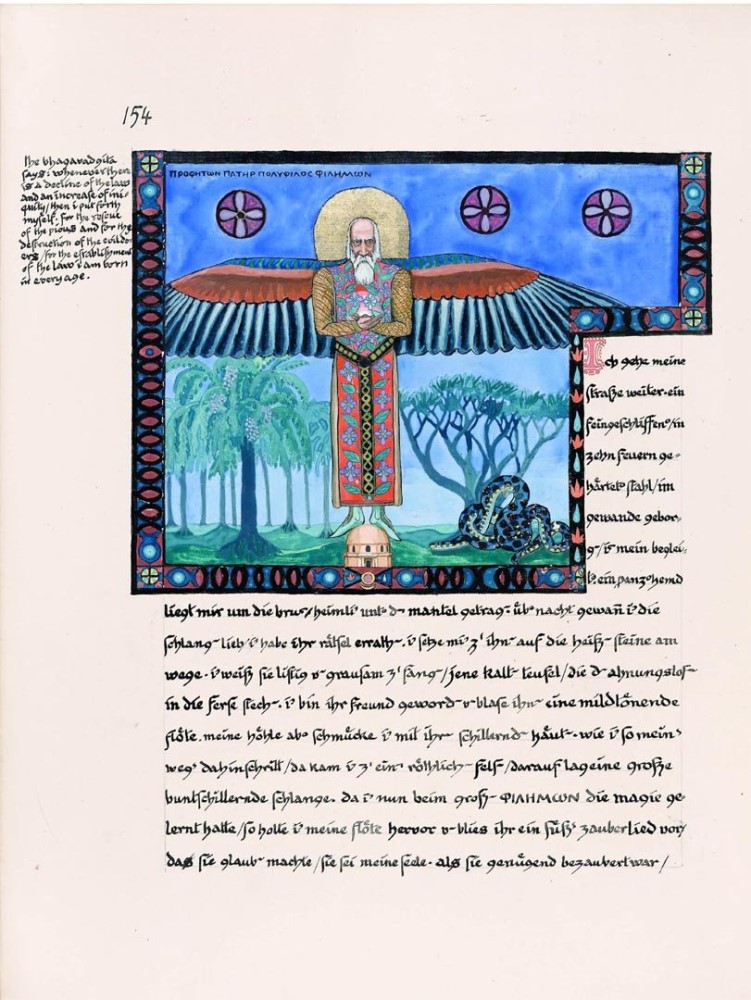 154
the bhagavadgita
says: whenever there
is a decline of the law
and an increase of ini-
quity/then i put forth
myself. for the rescue
of the pious and for the
destruction of the evildo-
ers/for the establishment
of the law i am born
in every age.
ΠΡΟΦΗΤΩΝ ΠΑΤΗΡ ΠΟΛΥΦΙΛΟC ΦΙΛΗΜΩΝ
Ich gehe meine
straße weiter. ein
feingeschliffen'/in
zehn feuern ge-
härtet' stahl/im
gewande gebor-
g-/i' mein beglei-
t'. ein panz'hemd
liegt mir um die brust/heimli' unt' d- mantel getrag-. üb' nacht gewañ i' die
schlang- lieb i' habe ihr rätsel errath-. i' setze mi' z' ihn- auf die heiß- steine am
wege. i' weiß sie listig u- grausam z' fang-/jene kalt- teufel/die d- ahnungslos-
in die ferse stech-. i' bin ihr freund geword- u- blase ihn- eine mildtönende
flöte. meine höhle ab' schmücke i' mit ihr- schillernd- häut-. wie i' so mein'
weg' dahinschritt/da kam i' z' ein- röthlich- fels/darauf lag eine große
buntschillernde schlange. da i' nun beim groß- ΦΙΛΗΜΩΝ die magie ge-
lernt hatte/so holte i' meine flöte hervor u- blies ihr ein süß' zauberlied vor/
das sie glaub- machte/sie sei meine seele. als sie genügend bezaubert war/